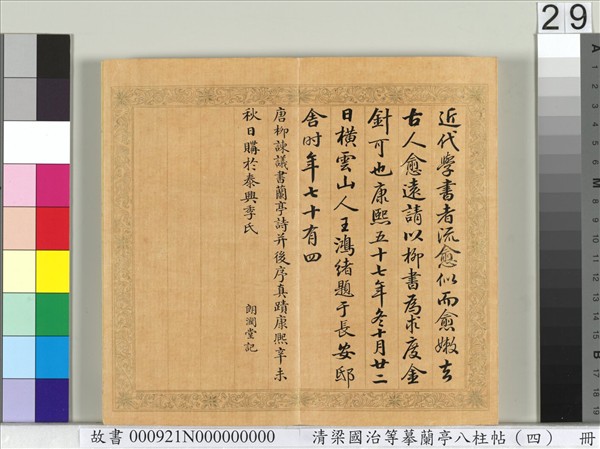 29
近代學書者流愈似而愈嫩去
古人愈遠請以柳書為求度金
針可也康熙五十七年冬十月廿二
日橫雲山人王鴻緒題于長安邸
舍时年七十有四
唐柳諫議書蘭亭詩并後序真蹟康熙辛未
秋日購於泰興季氏
朗潤堂記
故書 000921N000000000 清梁國治等摹蘭亭八柱帖（四） 冊